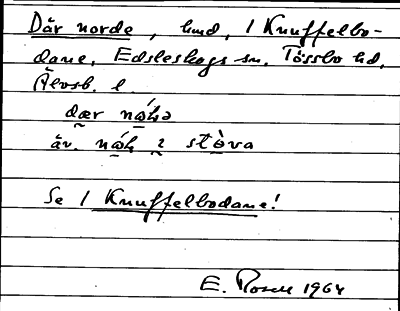 Där norde, hmd, i Knuffelbo-
dane, Edsleskogs sn. Tössbo hd,
Älvsb. l.
dær
äv. stòva
Se i Knuffelbodane!
E. Rosell 1964